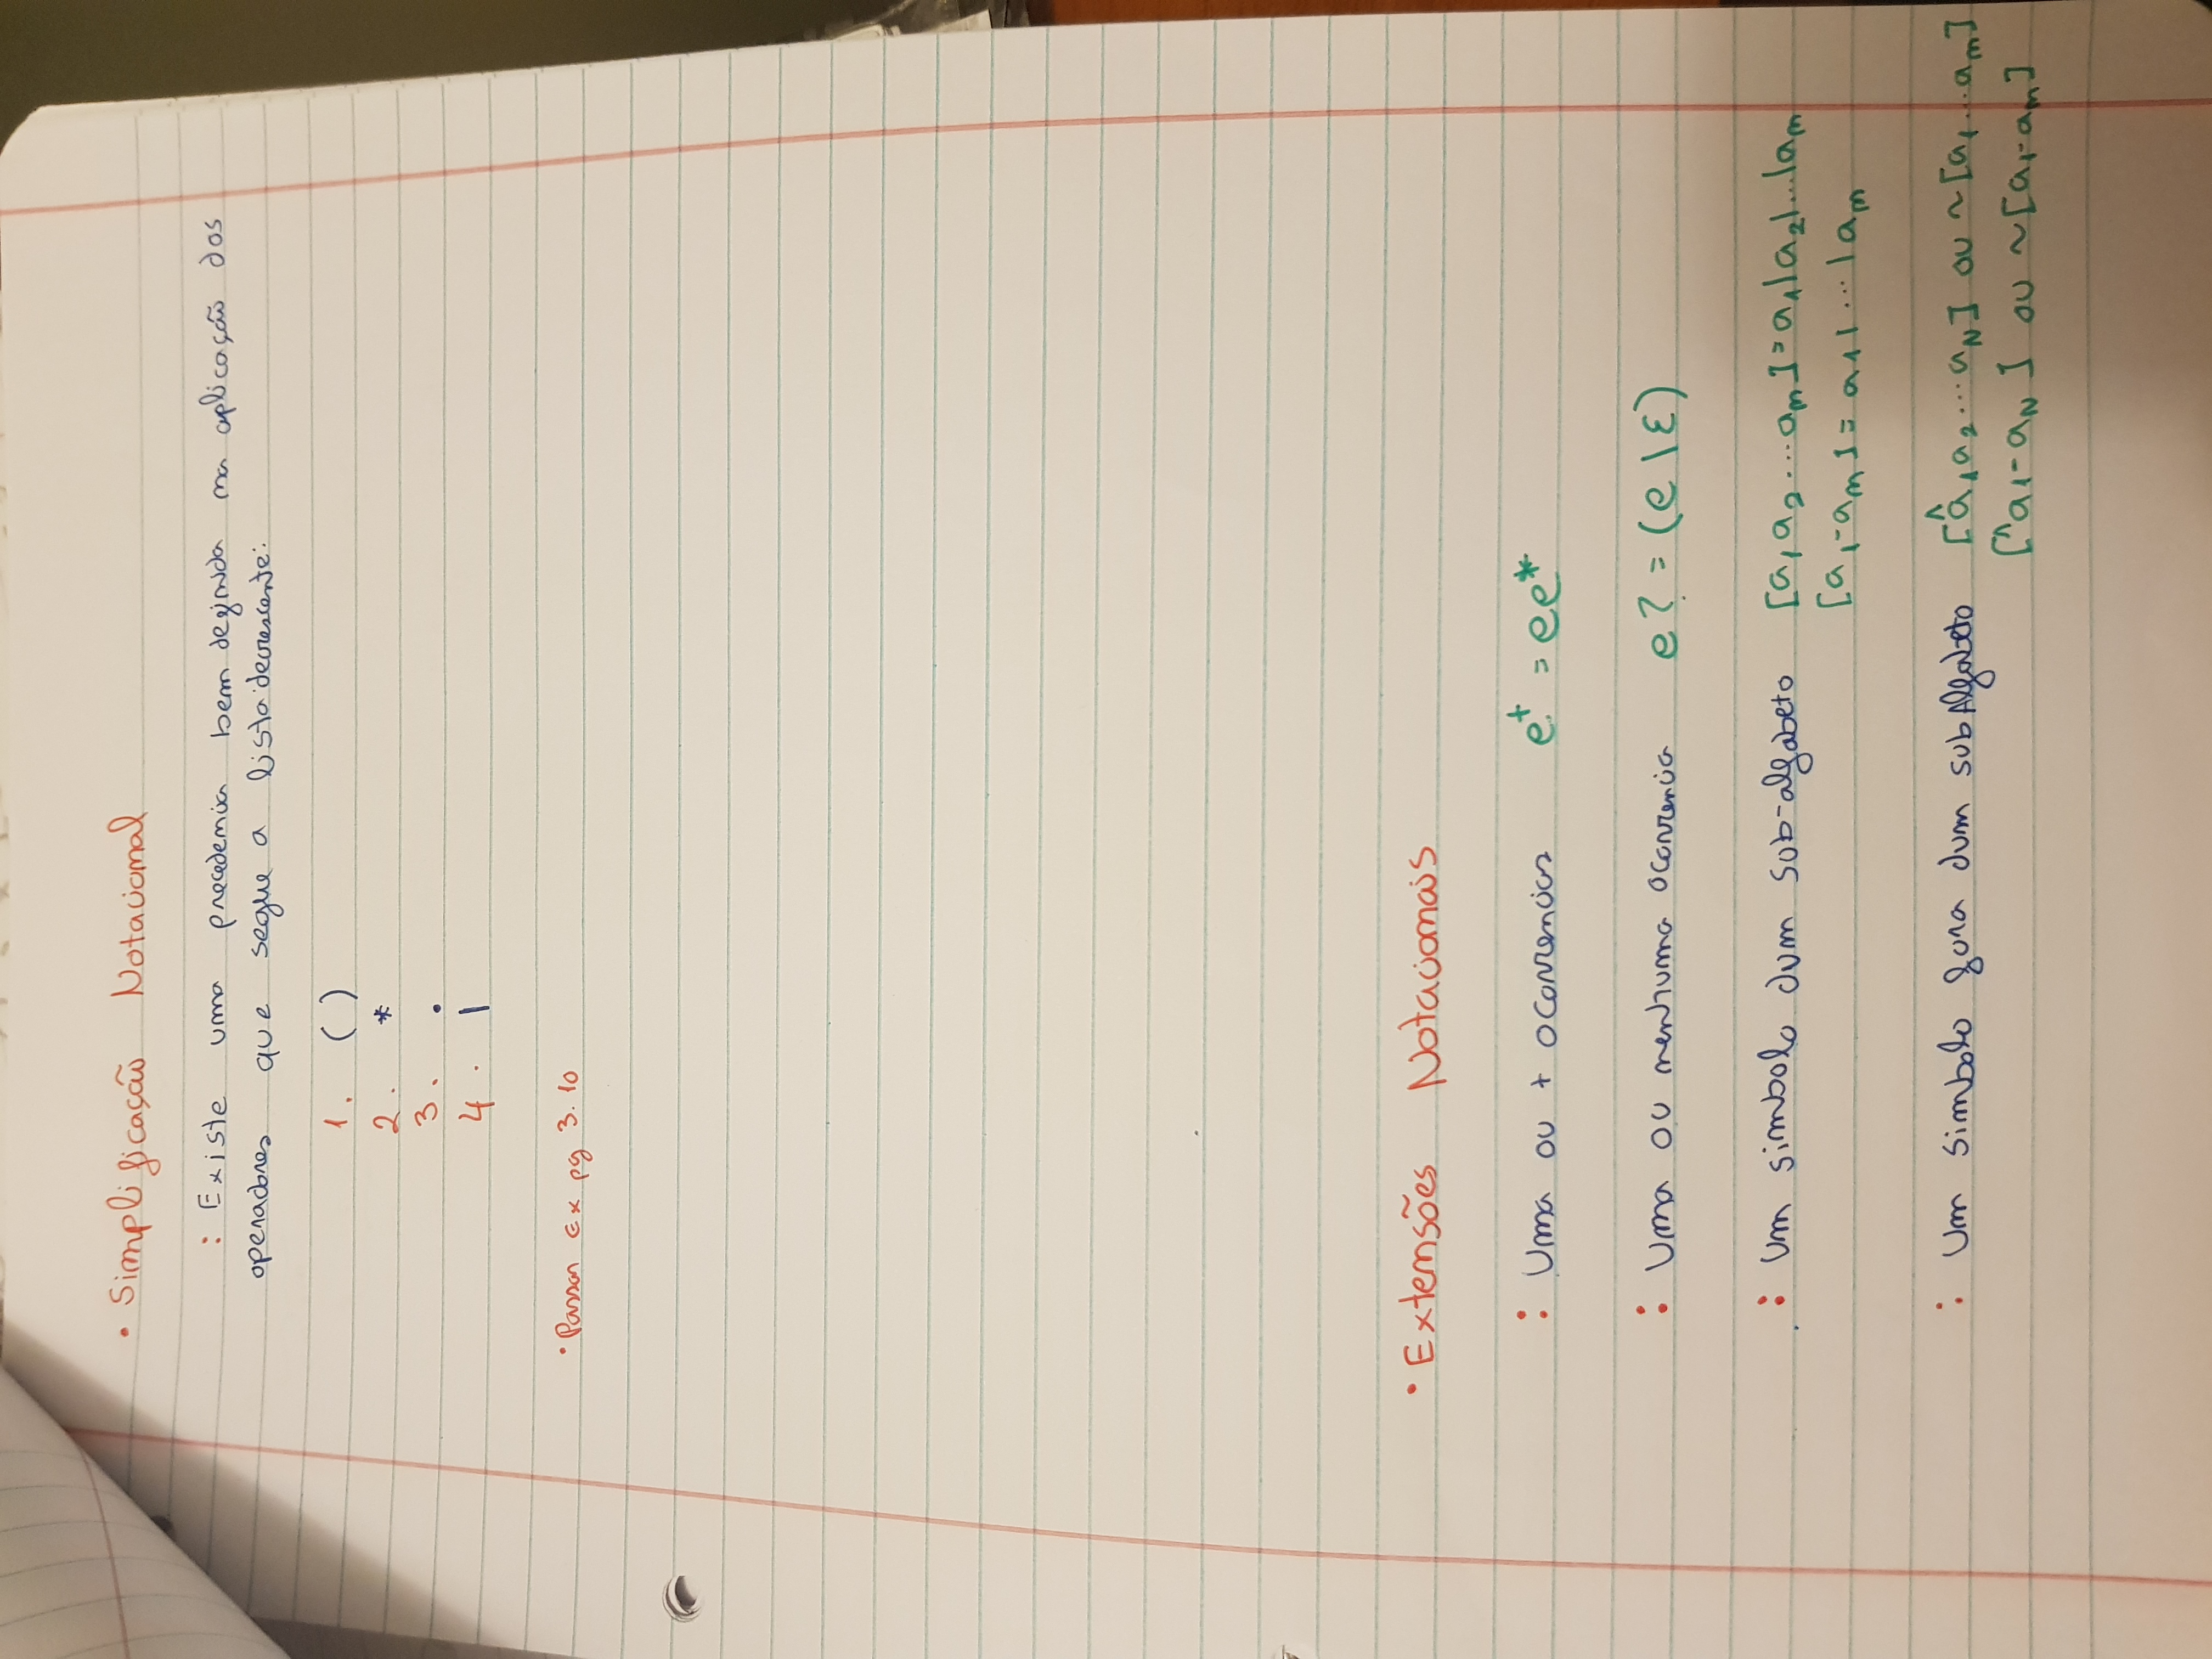 • Simplificação Notacional
: Existe uma precedencia bem definida na aplicação dos
operadores que segue a lista decrescente:
1. ( )
2. *
3. .
4. |
• Passar Ex pg 3.10
• Extensões Notacionais
: Uma ou + ocorrencias e⁺ = ee*
: Uma ou nenhuma ocorrencia e? = (e|ε)
: Um simbolo dum sub-alfabeto [a₁a₂...aₙ] = a₁|a₂|...|aₙ
[a₁-aₙ] = a₁|...|aₙ
: Um simbolo fora dum subAlfabeto [^a₁a₂...a_N] ou ~[a₁...aₙ]
[^a₁-a_N] ou ~[a₁-aₙ]